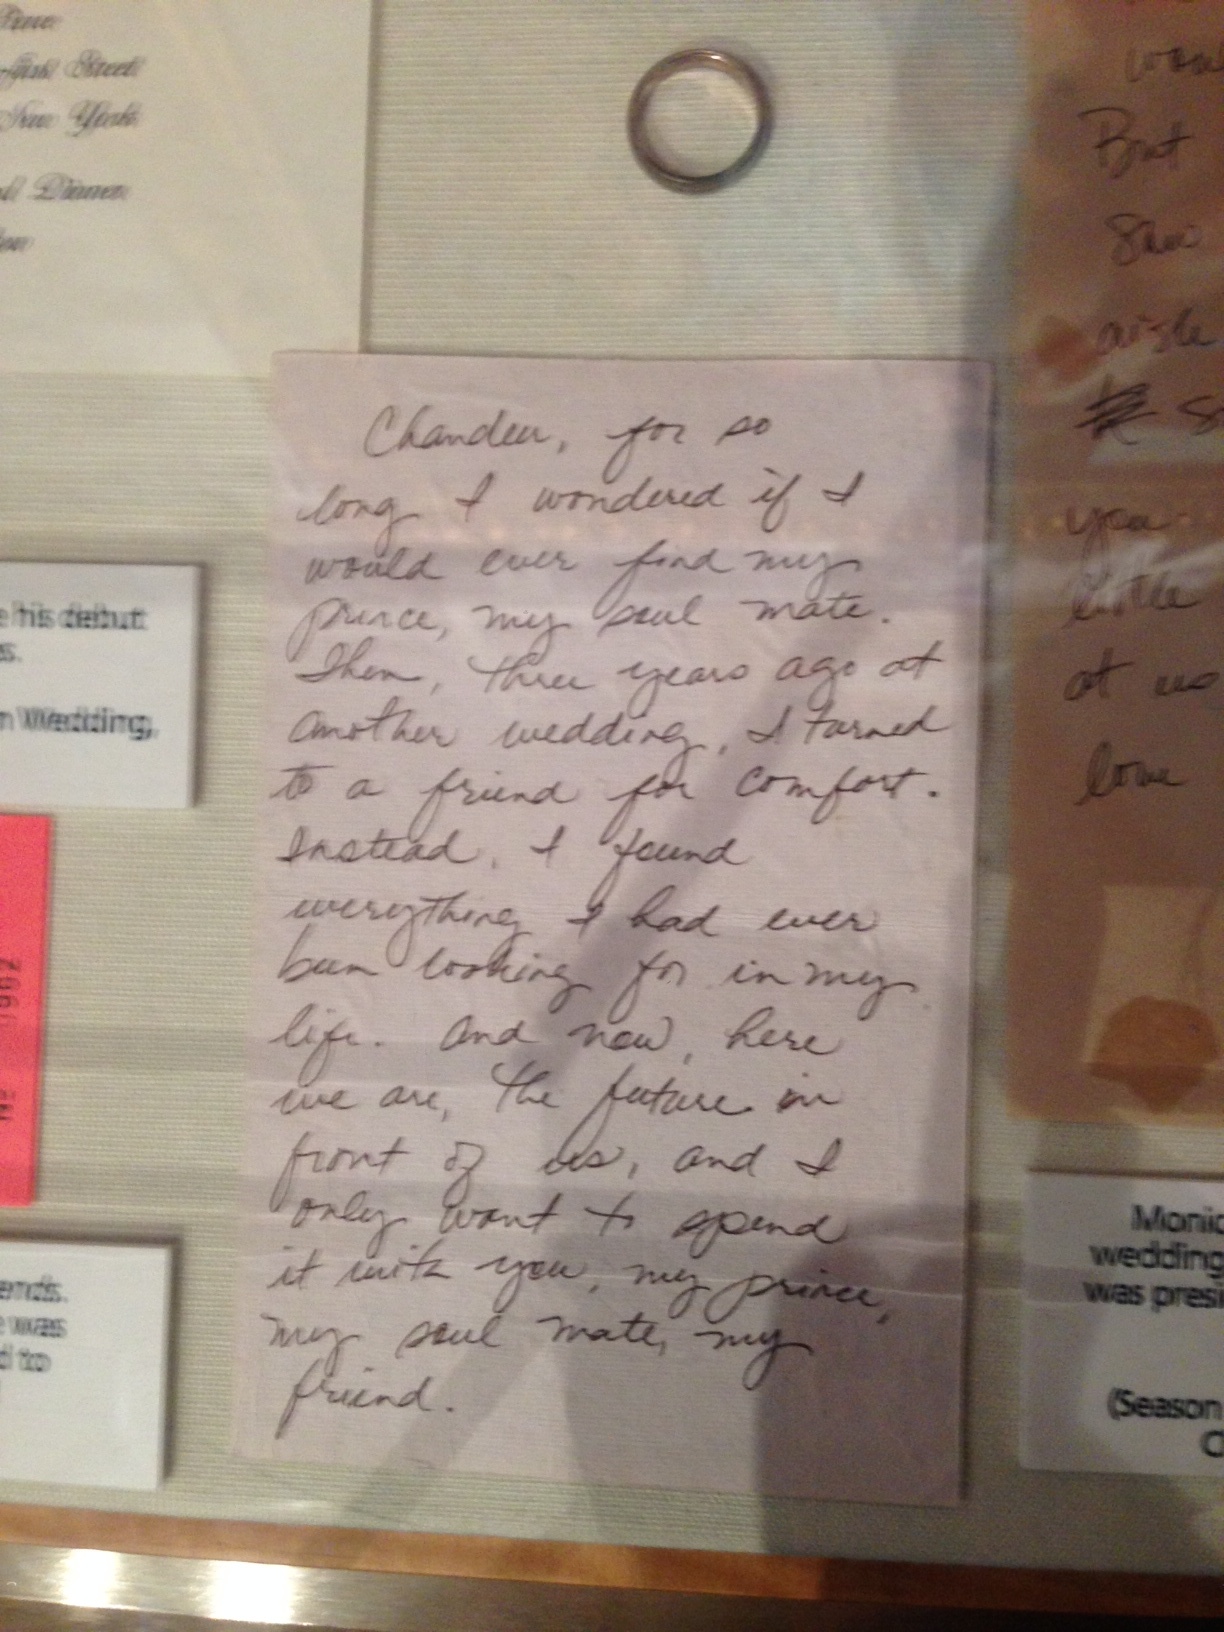 New York
Dinner
his debut
Wedding,
Nº 1902
was
to
Chandler, for so
long I wondered if I
would ever find my
prince, my soul mate.
Then, three years ago at
another wedding, I turned
to a friend for comfort.
Instead, I found
everything I had ever
been looking for in my
life. And now, here
we are, the future in
front of us, and I
only want to spend
it with you, my prince,
my soul mate, my
friend.
But
Saw
aisle
you
little
at us
love
wedding
was
(Season